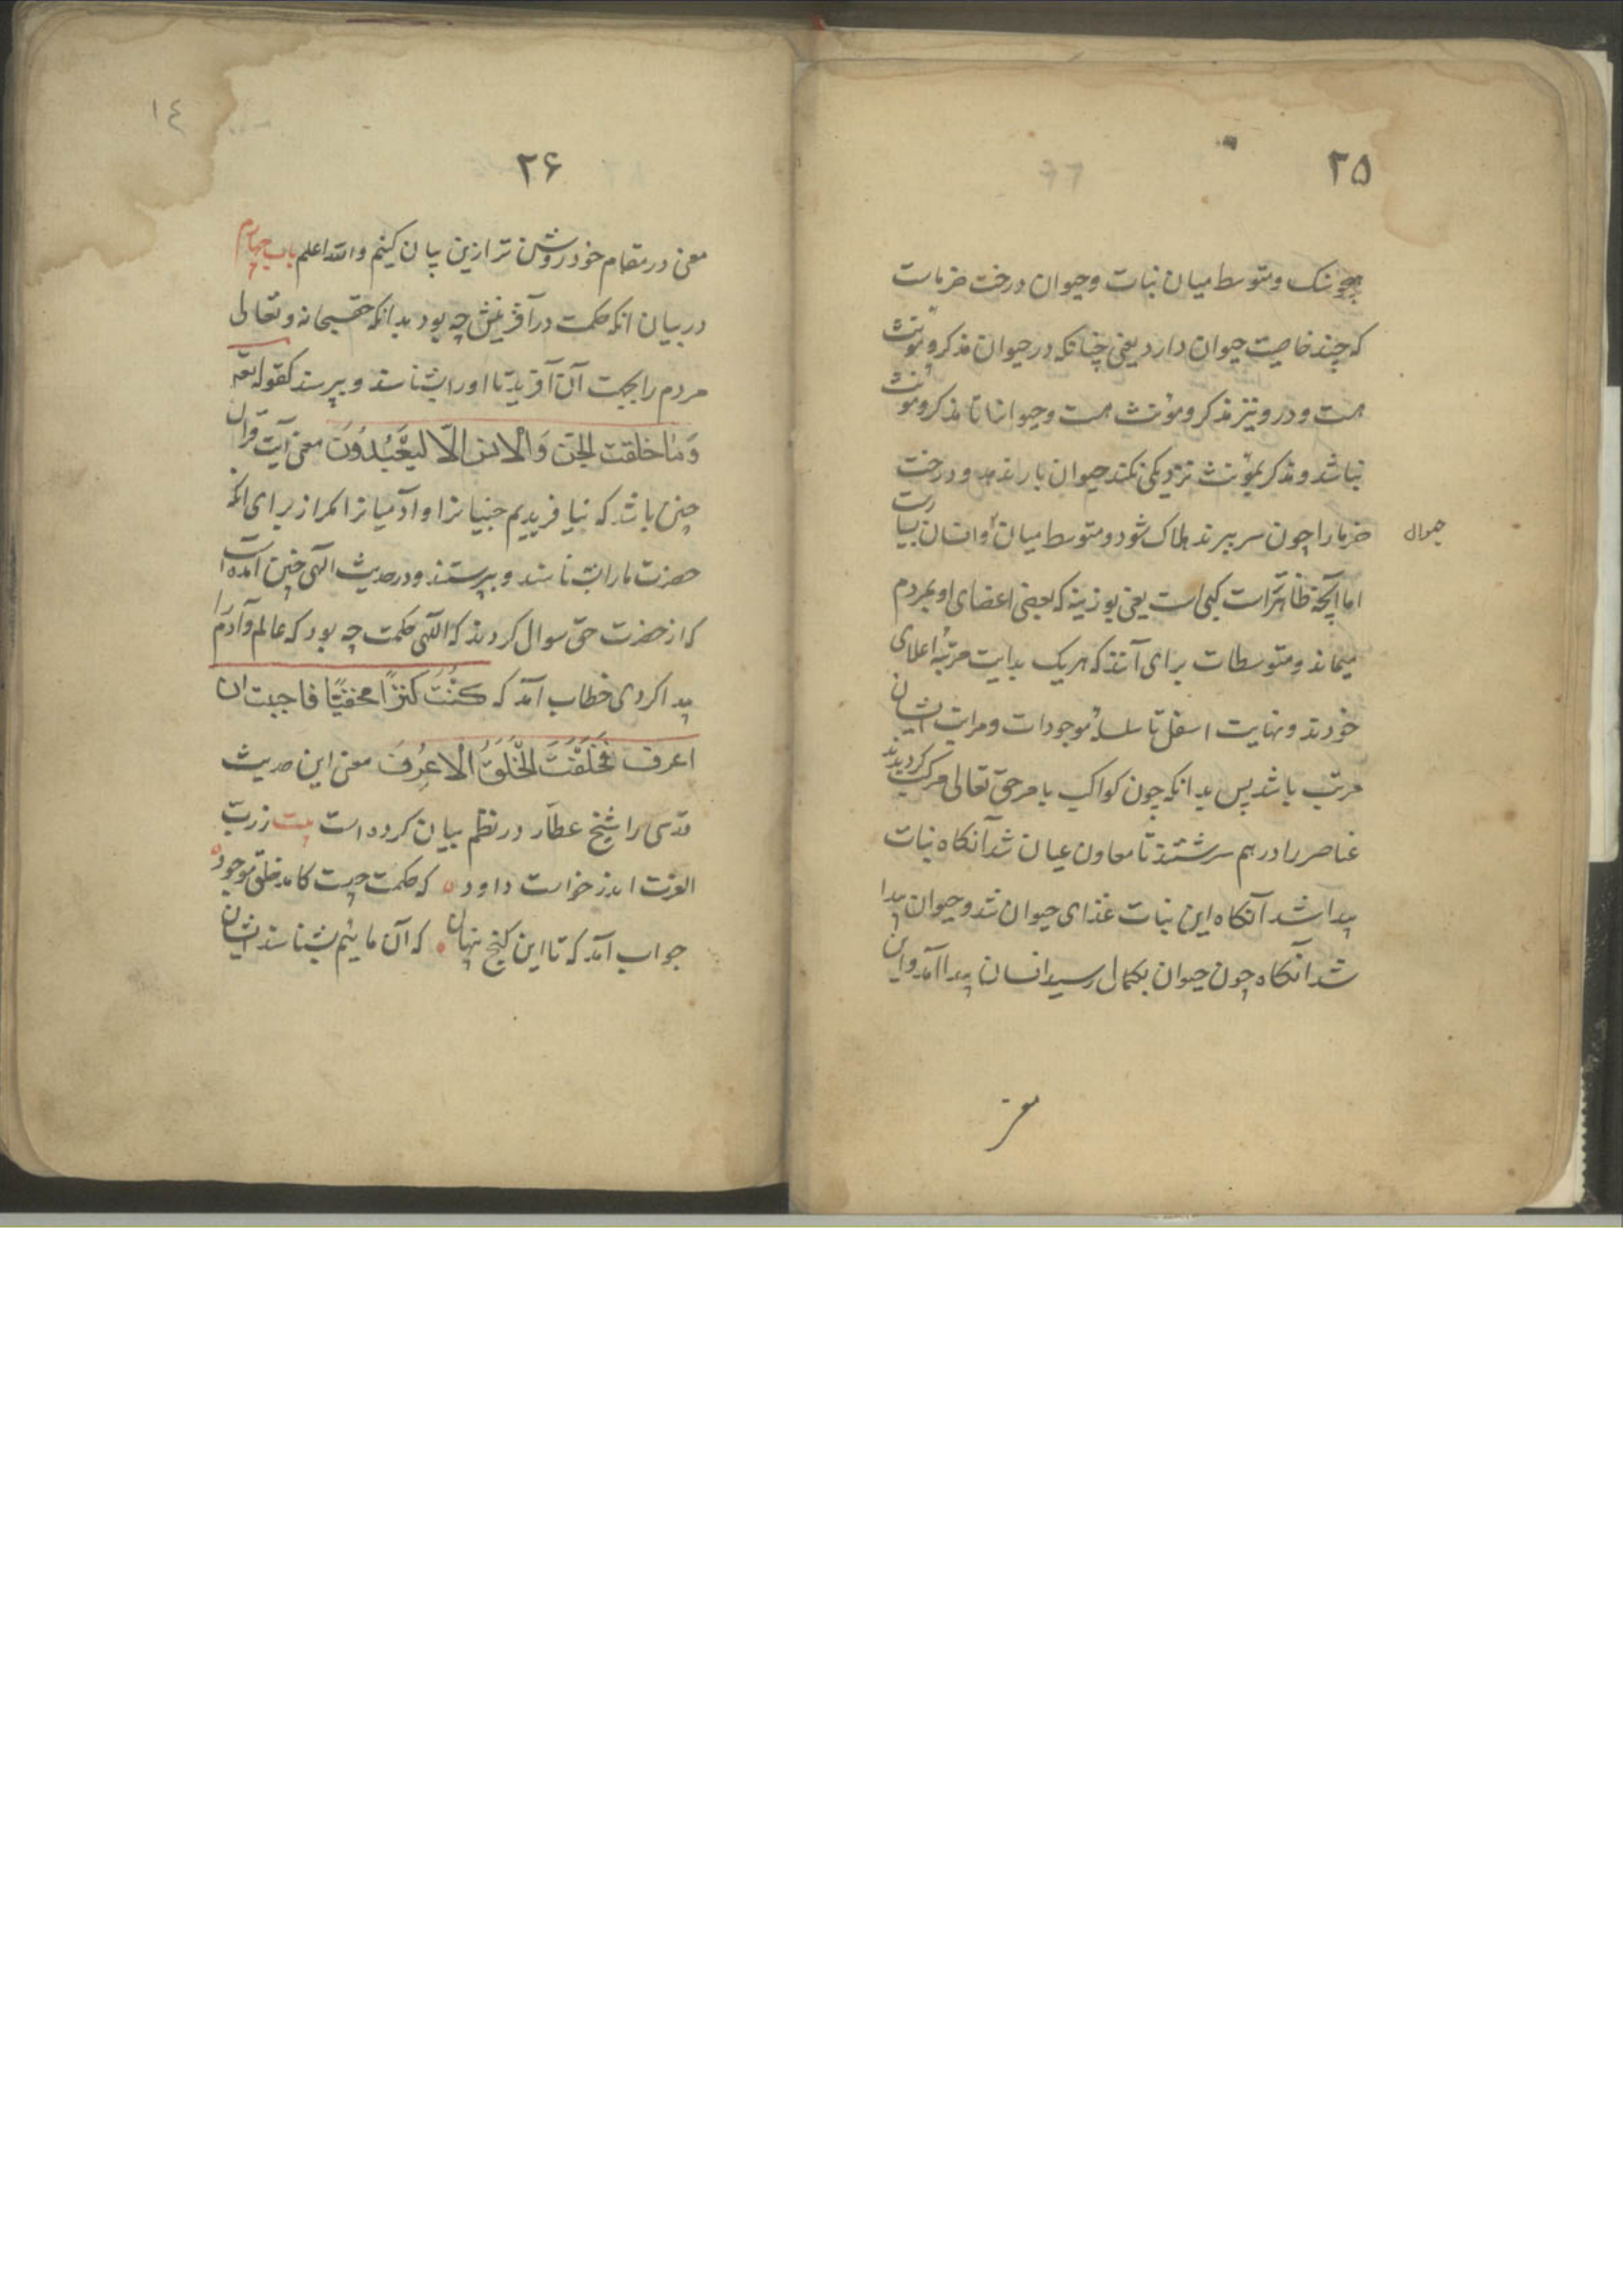 ۲۵
همچو سنک و متوسط میان نبات و حیوان درخت خرماست
که چند خاصیت حیوان دارد یعنی چنانکه در حیوان مذکر و مؤنث
هست و در و نیز مذکر و مؤنث هست و حیوانا تا مذکر و مؤنث
نباشد و مذکر بمؤنث نزدیکی نکند حیوان بار ندهد و درخت
خرما را چون سر ببرند هلاک شود و متوسط میان و انسان بسیارست
حیوان
اما آنچه ظاهرتر است کپی است یعنی بوزینه که بعضی اعضای او بمردم
میماند و متوسطات برای آنند که هر یک بدایت مرتبهٔ اعلای
خودند و نهایت اسفل تا سلسلهٔ موجودات و مراتب ایشان
مرتب باشد پس بدانکه چون کواکب بامر حق تعالی مرکب کردیدند
عناصر را در هم سرشتند تا معادن عیان شد آنکاه نبات
پیدا شد آنکاه این نبات غذای حیوان شد و حیوان پیدا
شد آنکاه چون حیوان بکمال رسید انسان پیدا آمد و این
معنی
۱٤
۲۶
معنی در مقام خود روشن تر ازین بیان کنیم والله اعلم باب چهارم
در بیان انکه حکمت در آفرینش چه بود بدانکه حق سبحانه و تعالی
مردم را بجهت آن آفرید تا او را بشناسند و بپرستند کقوله تعه
وَمٰا خلقت الجنّ وَالانس الّا ليَعبُدُونَ معنی آیت قران
چنین باشد که نیافریدیم جنیانرا و آدمیانرا مکر از برای انکه
حضرت ما را بشناسند و بپرستند و در حدیث الهی چنین آمده است
که از حضرت حق سوال کردند که الهی حکمت چه بود که عالم و آدم را
پیدا کردی خطاب آمد که كُنْتُ كَنزًا مخفيًا فاحببت ان
اعرف فَخَلَقْتَ الخَلَقُ لاعرف معنی این حدیث
قدسی را شیخ عطّار در نظم بیان کرده است بیت ز ربّ
العزت اندر خواست داود که حکمت چیست کامد خلق موجود
جواب آمد که تا این کنج پنهان که آن مائیم بشناسند ایشان